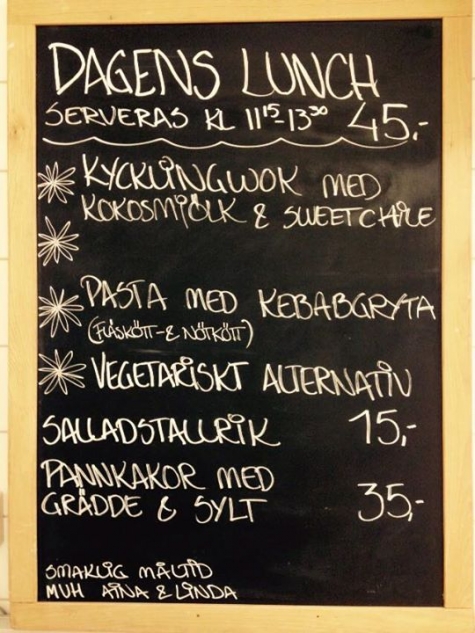 DAGENS LUNCH
SERVERAS KL 11¹⁵-13³⁰ 45,-
KYCKLINGWOK MED
KOKOSMJÖLK & SWEETCHILE
PASTA MED KEBABGRYTA
(FLÄSKÖTT- & NÖTKÖTT)
VEGETARISKT ALTERNATIV
SALLADSTALLRIK 15,-
PANNKAKOR MED
GRÄDDE & SYLT 35,-
SMAKLIG MÅLTID
MVH AINA & LINDA